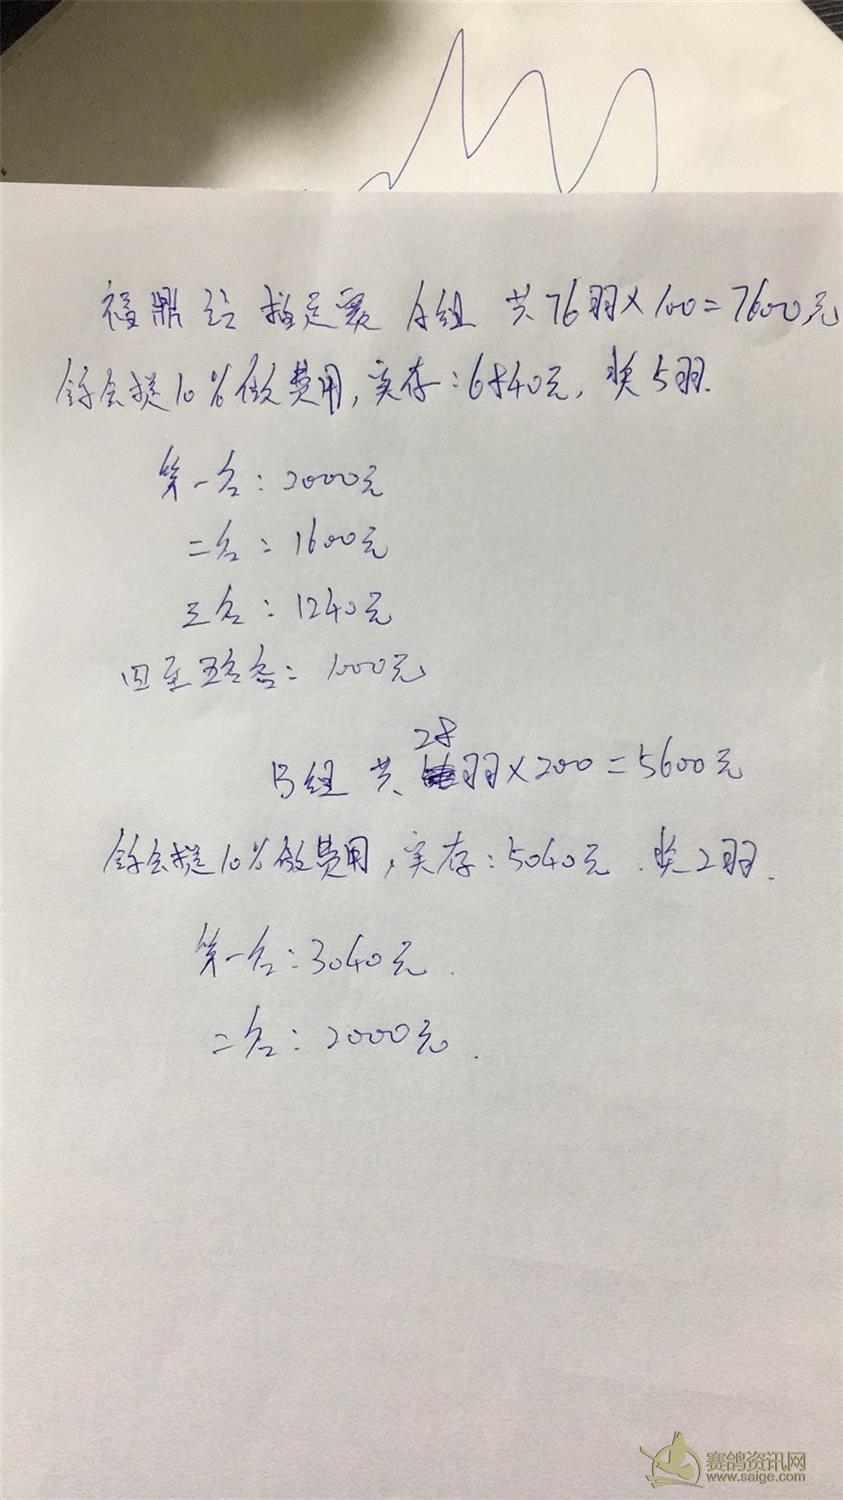 福鼎站指定赛 A组 共76羽×100=7600元
鸽会提10%做费用,实存:6840元,奖5羽.
第一名:2000元
二名:1600元
三名:1240元
四至五名各:1000元
B组 共28羽×200=5600元
鸽会提10%做费用,实存:5040元.奖2羽.
第一名:3040元.
二名:2000元.
赛鸽资讯网
www.saige.com